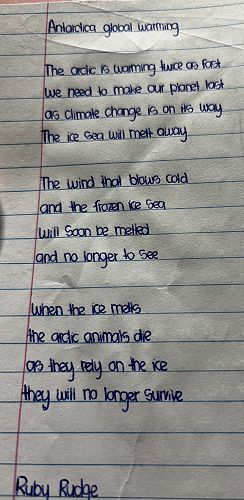 Antarctica global warming
The arctic is warming twice as fast
We need to make our planet last
as climate change is on its way
The ice sea will melt away
The wind that blows cold
and the frozen ice sea
will soon be melted
and no longer to see
when the ice melts
the arctic animals die
as they rely on the ice
they will no longer survive
Ruby Rudge